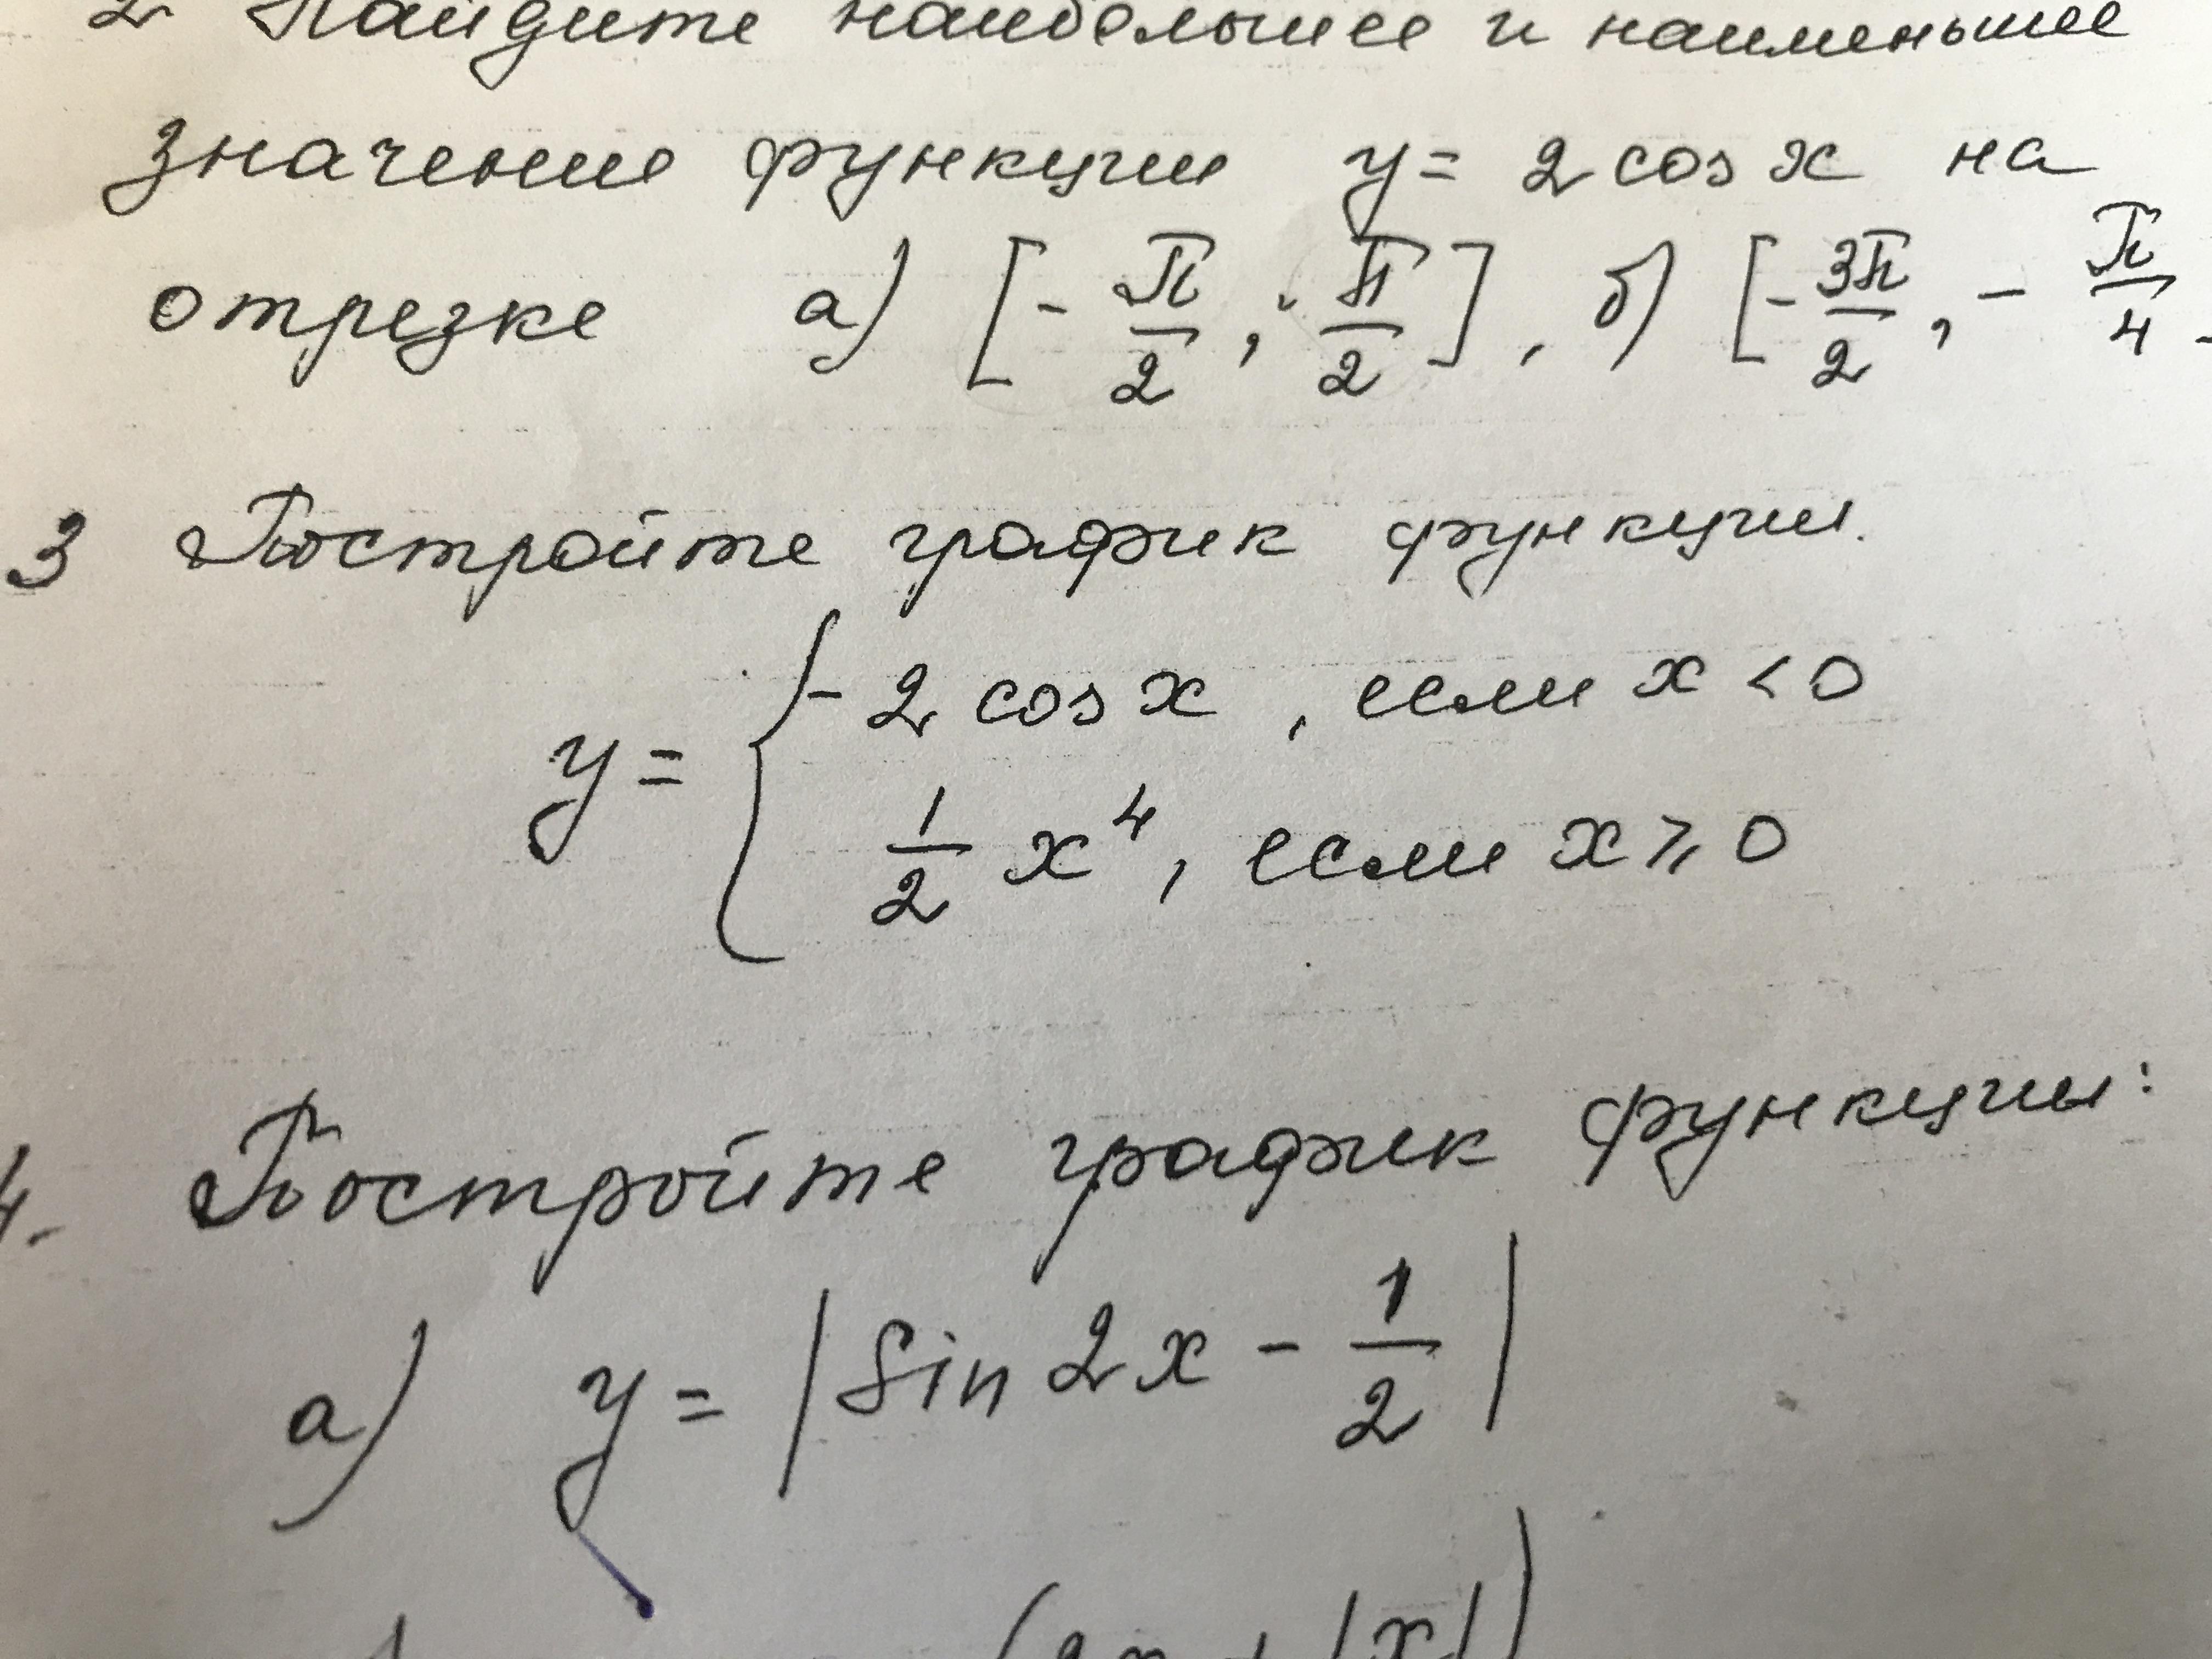 2 Найдите наибольшее и наименьшее
значение функции y = 2 cos x на
отрезке а) [-π/2, π/2], б) [-3π/2, -π/4
3 Постройте график функции.
y = { -2 cos x, если x < 0
1/2 x⁴, если x ⩾ 0
4. Постройте график функции:
а) y = |sin 2x - 1/2|
(2x + |x|)